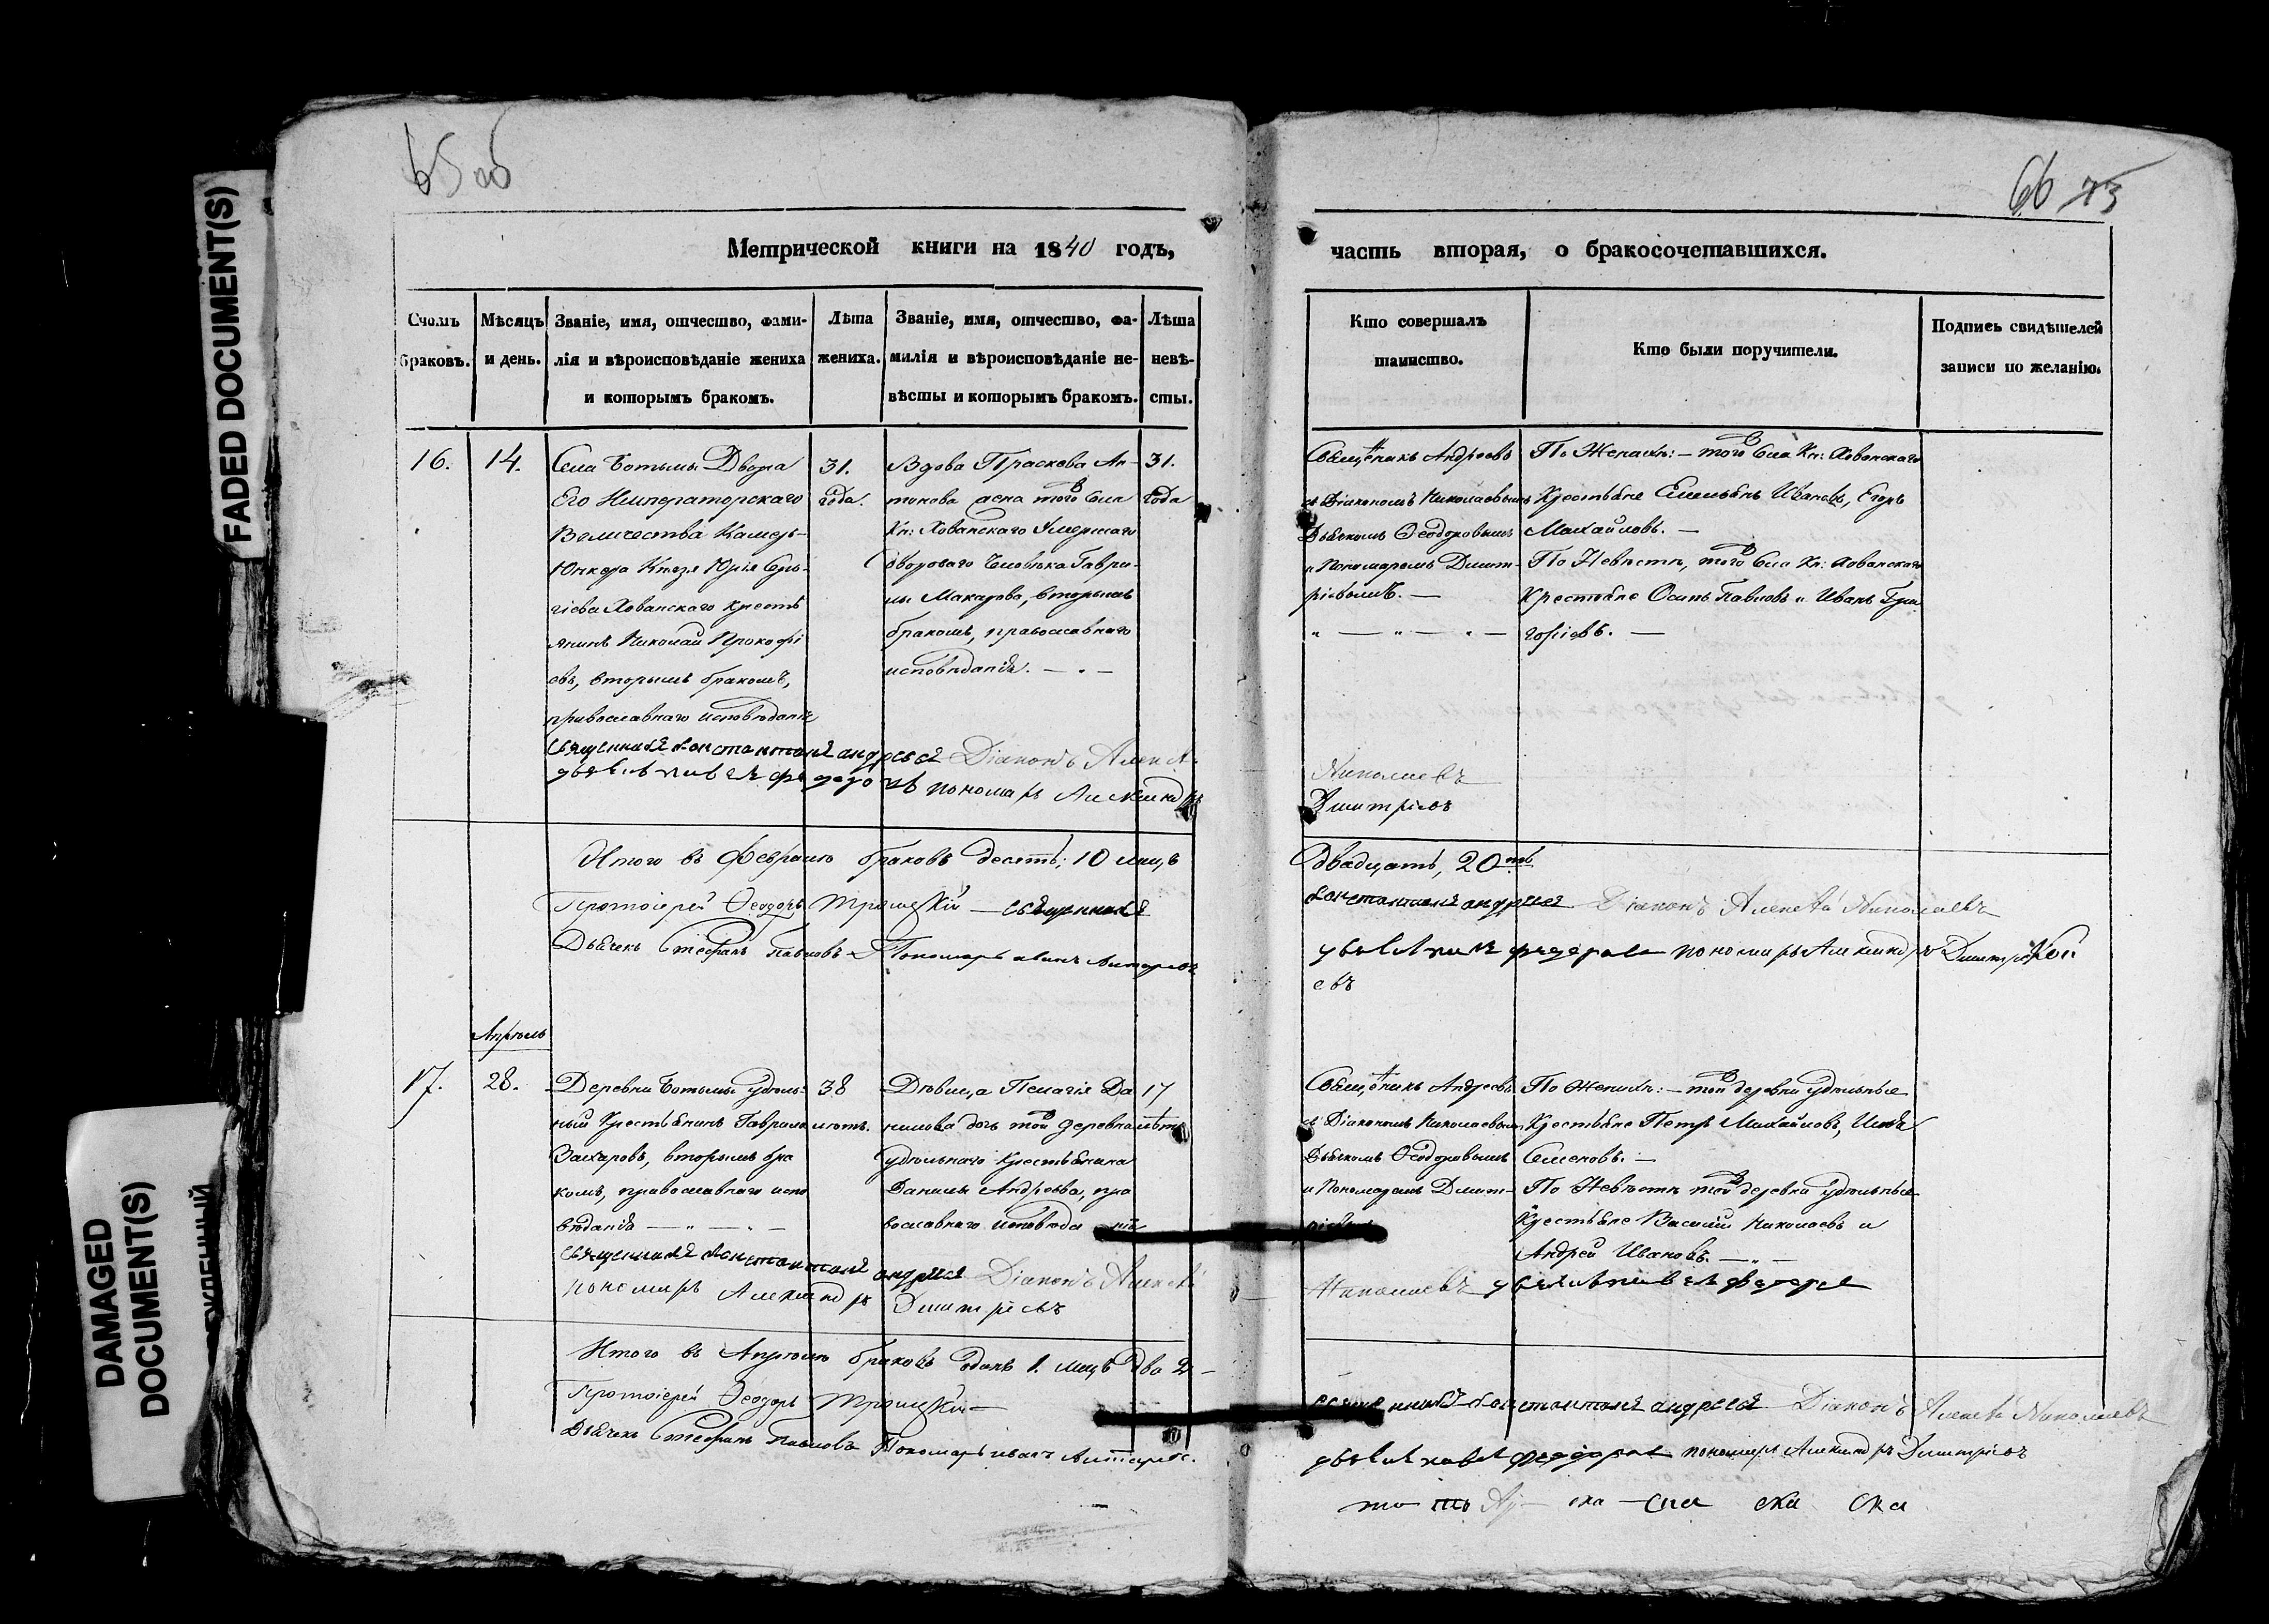 FADED DOCUMENT(S)
DAMAGED
DOCUMENT(S)
65 об
Метрической книги на 1840 годъ,
Счетъ браковъ.
Мѣсяцъ и день.
Званіе, имя, отчество, фами-
лія и вѣроисповѣданіе жениха
и которымъ бракомъ.
Лѣта
жениха.
Званіе, имя, отчество, фа-
милія и вѣроисповѣданіе не-
вѣсты и которымъ бракомъ.
Лѣта
невѣ-
сты.
16.
14.
Села Ботьмы Двора
Его Императорскаго
Величества Камеръ-
Юнкера Князя Юрія Сер-
гіева Хованскаго кресть
янинъ Николай Прокофі
евъ, вторымъ бракомъ,
православнаго исповѣданія
31.
года.
Вдова Праскева Ан-
тонова того села
Кн: Хованскаго Умершаго
двороваго Человѣка Гаври-
лы Макарова, вторымъ
бракомъ, православнаго
исповѣданія. —
31.
года
священникъ константинъ андреевъ Діаконъ Алексѣй
пономарь Александръ
Итого въ Февралѣ браковъ десять, 10 лицъ
Протоіерей Ѳеодоръ Троицкій — священникъ
Дьячекъ Стефанъ Павловъ Пономарь иванъ
Апрѣль
17.
28.
Деревни Ботьмы Удѣль-
ный Крестьянинъ Гаврило
Захаровъ, вторымъ бра
комъ, православнаго испо
вѣданія
38
лѣтъ.
Дѣвица Пелагія Да
нилова дочь той деревни
удѣльнаго крестьянина
Данилы Андреева, пра
вославнаго исповѣданія
17
лѣтъ
священникъ константинъ андреевъ Діаконъ Алексѣй
пономарь Александръ Дмитріевъ
Итого въ Апрѣлѣ браковъ одинъ 1. лицъ два 2 —
Протоіерей Ѳеодоръ Троицкій —
Дьячекъ Стефанъ Павловъ Пономарь иванъ
66 73
часть вторая, о бракосочетавшихся.
Кто совершалъ
таинство.
Кто были поручители.
Подпись свидѣтелей
записи по желанію.
Священникъ Андреевъ
съ Діакономъ Николаевымъ
Дьячкомъ Ѳеодоровымъ
и Пономаремъ Дмит-
ріевымъ. —
По Женихѣ: — того села Кн: Хованскаго
Крестьяне Емельянъ Ивановъ, Егоръ
Михайловъ. —
По Невѣстѣ, того села Кн: Хованскаго
Крестьяне Осипъ Павловъ и Иванъ Гри
горіевъ. —
Николаевъ
Дмитріевъ
двадцать, 20ть
константинъ андреевъ Діаконъ Алексѣй Николаевъ
пономарь Александръ Дмитрі
евъ
Священникъ Андреевъ
съ Діакономъ Николаевымъ
Дьячкомъ Ѳеодоровымъ
и Пономаремъ Дмит-
По Женихѣ: — той деревни удѣльные
Крестьяне Петръ Михайловъ, Илья
Семеновъ. —
По Невѣстѣ той деревни удѣльные
Крестьяне Василій Николаевъ и
Андрей Ивановъ. —
Николаевъ
константинъ андреевъ Діаконъ Алексѣй Николаевъ
пономарь Александръ Дмитріевъ